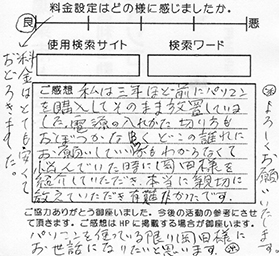 料金設定はどの様に感じましたか。
良
悪
使用検索サイト
検索ワード
ご感想 私は三年ほど前にパソコン
を購入してそのまま放置していま
した。電源の入れかた切り方も
おぼつかなく どこの誰れに
お願いしていいかもわからなくて
悩んでいた時に岡田様を
紹介していただき本当に親切に
教えていただき有難たかったです。
ご協力ありがとう御座いました。今後の活動の参考にさせ
て頂きます。ご感想はHPに掲載する場合が御座います。
パソコンを使っている限り岡田様に
お世話になりたいと思います。
料金はとても安くて
おどろきました。
よろしくお願いいたします。